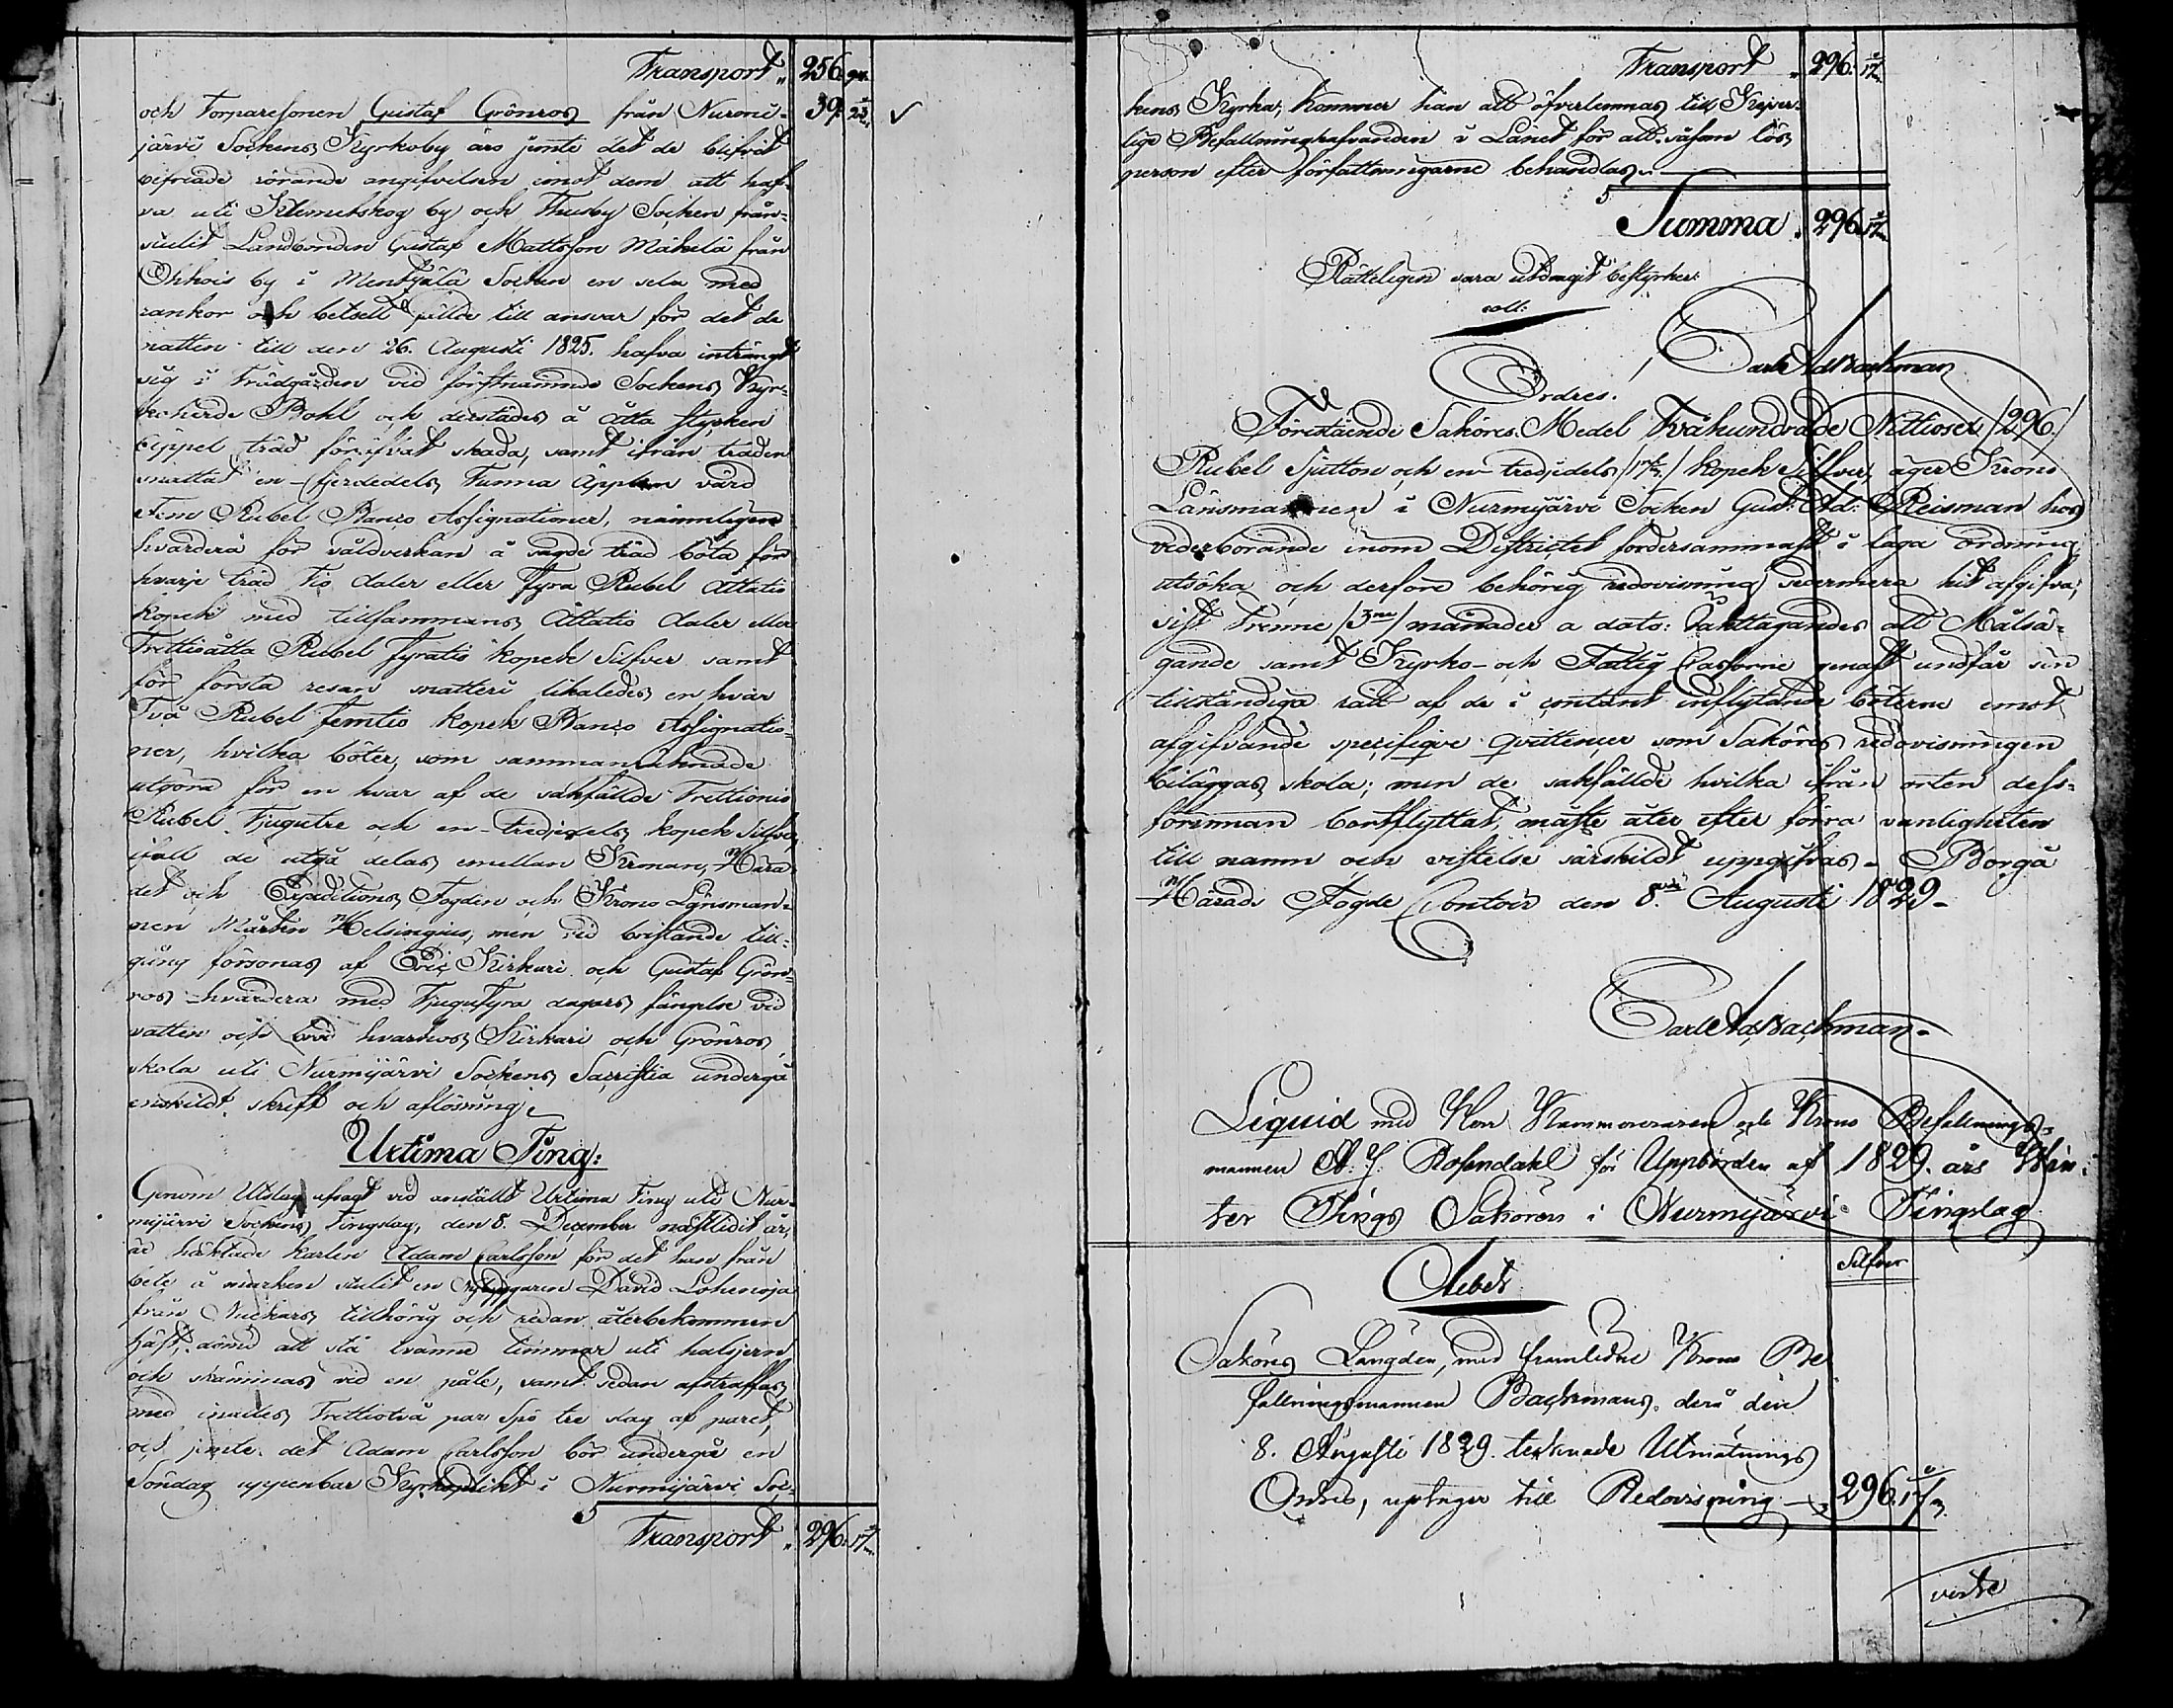 Transport „ 256. 94.
och Torparesonen Gustaf Grönros från Nurmi- 39. 23 1/3 ✓
järvi Sockens Kyrkoby äro jemte det de blifvit
befriade rörande angifvelsen emot dem att haf-
va uti Klemetskog by och Thusby Socken från-
stulit Landbonden Gustaf Mattsson Mäkelä från
Ohkois by i Mentsälä Socken en sela med
rankor och betsell fällde till ansvar för det de
natten till den 26. Augusti 1825. hafva inträngt
sig i Trädgården vid förstnämnde Sockens Kyr-
koherde Bohl och derstädes å Åtta stycken
Äppel träd föröfvat skada, samt ifrån träden
snattat en fjerdedels Tunna Äpplen värd
Fem Rubel Banco Assignationer, nämnligen
hvardera för våldverkan å sagde träd böta för
hvarje träd Tio daler eller Fyra Rubel Åttatio
kopek med tillsammans Åttatio daler eller
Trettioåtta Rubel fyratio kopek Silfver samt
för första resan snatteri likaledes en hvar
Två Rubel femtio kopek Banco Assignatio-
ner, hvilka böter, som sammanräknade
utgöra för en hvar af de sakfällde Trettionio
Rubel Tjugutre och en-tredjedels kopek Silfver,
ifall de utgå delas emellan Kronan, Hära-
det och Expeditions Fogden och Krono Länsman-
nen Mårten Helsingius, men vid bristande till-
gång försonas af Eric Kirkari och Gustaf Grön-
ros hvardera med Tjugufyra dagars fängelse vid
vatten och bröd hvarhos Kirkari och Grönros
skola uti Nurmijärvi Sockens Sacristia undergå
enskildt skrift och aflösning.
Urtima Ting:
Genom Utslag afsagt vid anställt Urtima Ting uti Nur-
mijärvi Sockens Tingslag, den 8. December näststlidit år,
är häktade karlen Adam Carlsson för det han från
bete å marken stulit en Nybyggaren David Lohenoja
från Nuckars tillhörig och redan återbekommen
häst, dömd att stå tvänne timmar uti halsjern
och skämmas vid en påle, samt sedan afstraffas
med Trettiotvå par Spö tre slag af paret,
och jemte det Adam Carlsson bör undergå en
Söndag uppenbar Kyrkoplikt i Nurmijärvi Soc-
Transport „ 296. 17 1/3
Transport „ 296. 17 1/3
kens Kyrka, kommer han att öfverlemnas till Kejser-
lige Befallningshafvanden i Länet för att såsom lös
person efter författningarne behandlas.
Summa „ 296. 17 1/3
Rätteligen vara utdragit bestyrker:
coll:
Carl Ad Backman
Ordres.
Förestående Saköres Medel Tvåhundrade Nittiosex /296./
Rubel Sjutton och en-tredjedels /17 1/3/ kopek Silfver, äger Krono
Länsmannen i Nurmijärvi Socken Gust: Ad: Reisman hos
vederbörande inom Districtet fordersammast i laga ordning
utsöka och derföre behörig redovisning sedermera hit afgifva,
sist Trenne /3ne/ månader a dato: iakttagandes att Målsä-
gande samt Kyrko- och Fattig Cassorne genast undfår sin
tillständiga rätt af de i contant inflytande böterne emot
afgifvande specifique qvittencer som Saköres redovisningen
biläggas skola; men de sakfällde hvilka ifrån orten dess-
förinnan bortflyttat, måste åter efter förra vanligheten
till namn och vistelse särskildt uppgifvas. Borgå
Härads Fogde Contoir den 8. Augusti 1829.
Carl Ad Backman.
Liquid med Herr Kammereraren och Krono Befallnings-
mannen A. J. Rosendahl för Uppbörden af 1829. års Win-
ter Tings Saköres i Nurmijärvi Tingslag
Silfver
Debet
Saköres Längden, med framledne Krono Be
fallningsmannen Backmans derå den
8. Augusti 1829. tecknade Utmätnings
Ordres, uptager till Redovisning — 296. 17 1/3.
verte